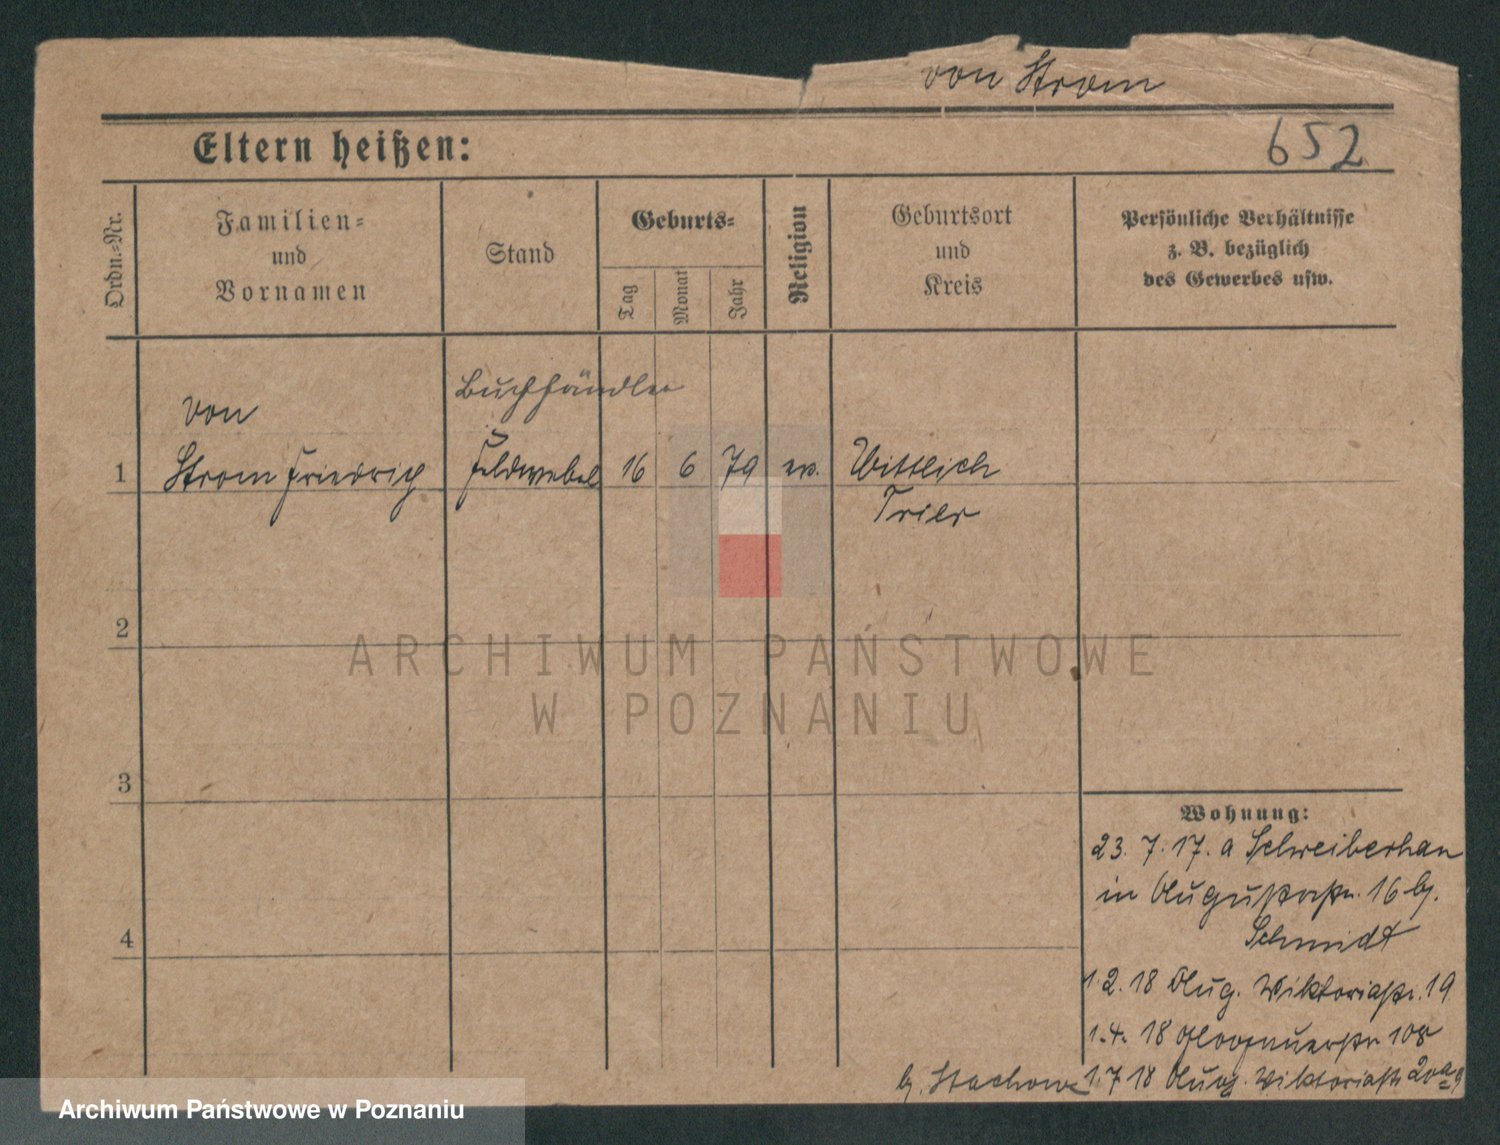 von Strom
Eltern heißen:
652
Ordn.-Nr.
Familien-
und
Vornamen
Stand
Geburts-
Tag
Monat
Jahr
Religion
Geburtsort
und
Kreis
Persönliche Verhältnisse
z. B. bezüglich
des Gewerbes usw.
Buchhändler
von
1 Strom Friedrich Feldwebel 16 6 79 ev. Wittlich
Trier
2
3
4
Wohnung:
23. 7. 17. a Schreiberhau
in Augustastr. 16 bj.
Schmidt
1. 2. 18 Aug. Viktoriastr. 19
1. 4. 18 108
bj. 1. 7 18 Aug. Viktoriastr 20
ARCHIWUM PAŃSTWOWE
W POZNANIU
Archiwum Państwowe w Poznaniu